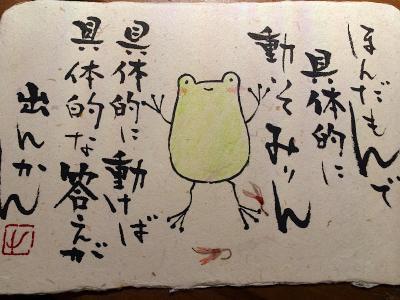 ほんだもんで
具体的に
動いてみりん
具体的に動けば
具体的な答えが
出んかん